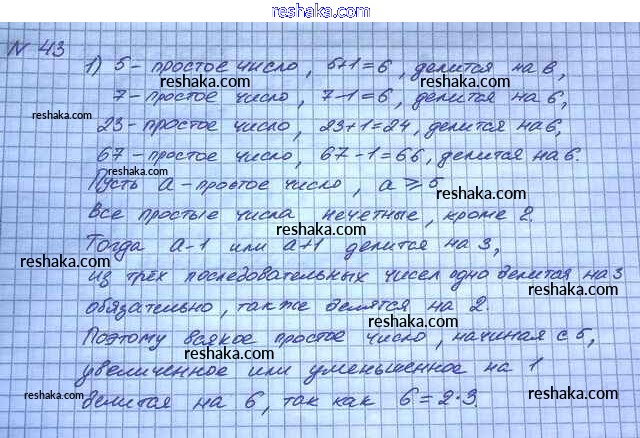 reshaka.com
N 43
1) 5 - простое число, 5+1=6, делится на 6,
reshaka.com reshaka.com
7 - простое число, 7-1=6, делится на 6,
reshaka.com
23 - простое число, 23+1=24, делится на 6,
reshaka.com reshaka.com
67 - простое число, 67-1=66, делится на 6.
Пусть a - простое число, a ⩾ 5
reshaka.com reshaka.com
Все простые числа нечетные, кроме 2.
reshaka.com
Тогда a-1 или a+1 делится на 3,
reshaka.com reshaka.com
из трёх последовательных чисел одно делится на 3
reshaka.com
обязательно, также делятся на 2.
reshaka.com
Поэтому всякое простое число, начиная с 5,
reshaka.com reshaka.com
увеличенное или уменьшенное на 1
reshaka.com reshaka.com
делится на 6, так как 6=2·3.
reshaka.com